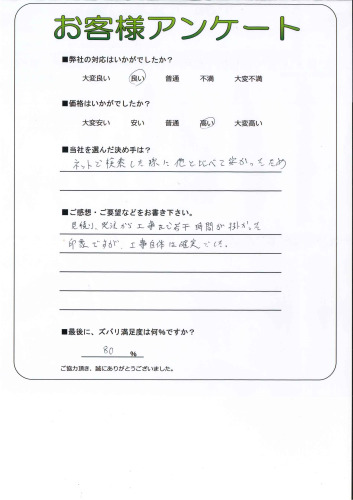 お客様アンケート
■弊社の対応はいかがでしたか？
大変良い 良い 普通 不満 大変不満
■価格はいかがでしたか？
大変安い 安い 普通 高い 大変高い
■当社を選んだ決め手は？
ネットで検索した際に他と比べて安かったため
■ご感想・ご要望などをお書き下さい。
見積り、発注から工事まで若干時間が掛かった
印象ですが、工事自体は確実でした。
■最後に、ズバリ満足度は何%ですか？
80 %
ご協力頂き、誠にありがとうございました。